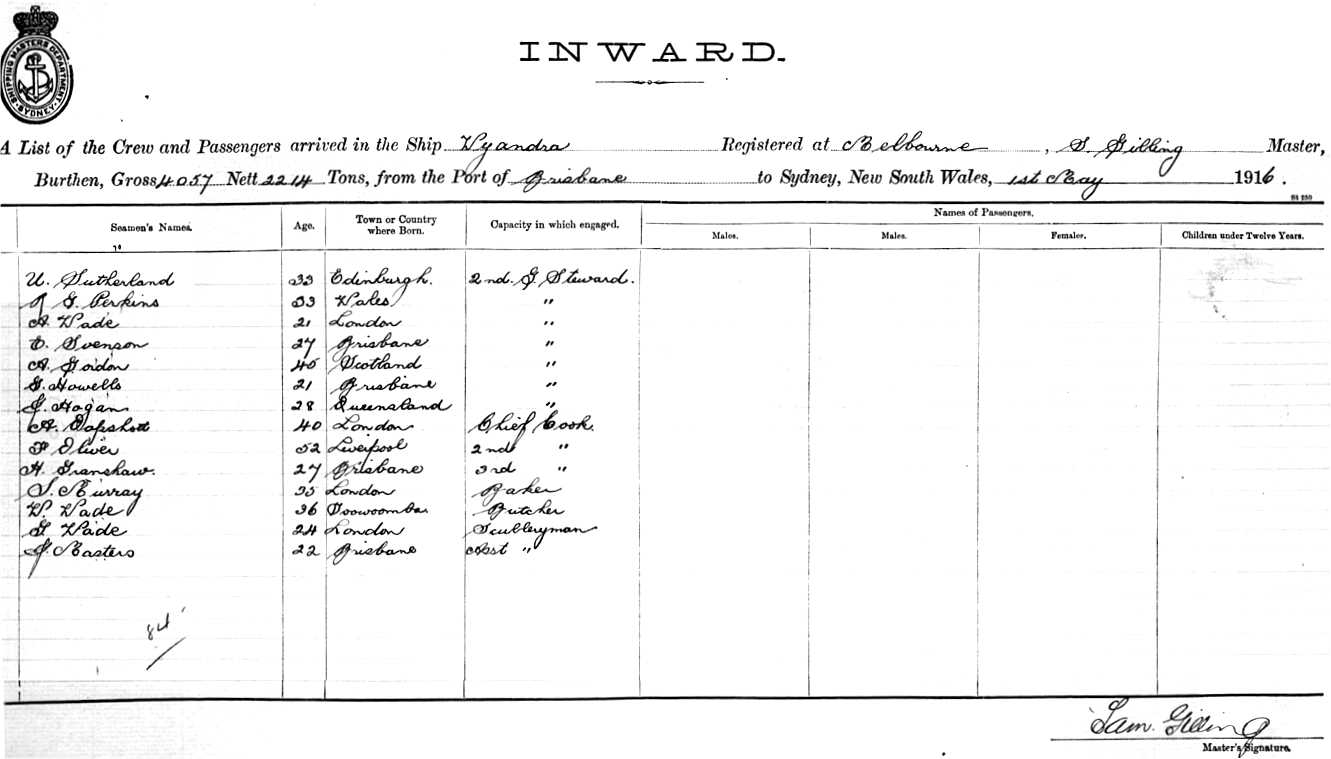 SHIPPING MASTERS DEPARTMENT SYDNEY
INWARD.
A List of the Crew and Passengers arrived in the Ship Wyandra Registered at Melbourne, S. Gilling Master,
Burthen, Gross 4057 Nett 2214 Tons, from the Port of Brisbane to Sydney, New South Wales, 1st May 1916.
Names of Passengers.
Seamen's Names. Age. Town or Country where Born. Capacity in which engaged. Males. Males. Females. Children under Twelve Years.
U. Sutherland 33 Edinburgh. 2nd. G. Steward.
G. Perkins 33 Wales "
A. Wade 21 London "
C. Svenson 27 Brisbane "
A. Gordon 40 Scotland "
G. Howells 21 Brisbane "
J. Hogan 28 Queensland "
A. Tapshott 40 London Chief Cook.
F Oliver 52 Liverpool 2nd "
H. Granshaw. 27 Brisbane 3rd "
S. Murray 35 London Baker
W. Wade 36 Toowoomba Butcher
G Wade 24 London Sculleryman
J. Masters 22 Brisbane Asst "
84
Sam. Gilling
Master's Signature.